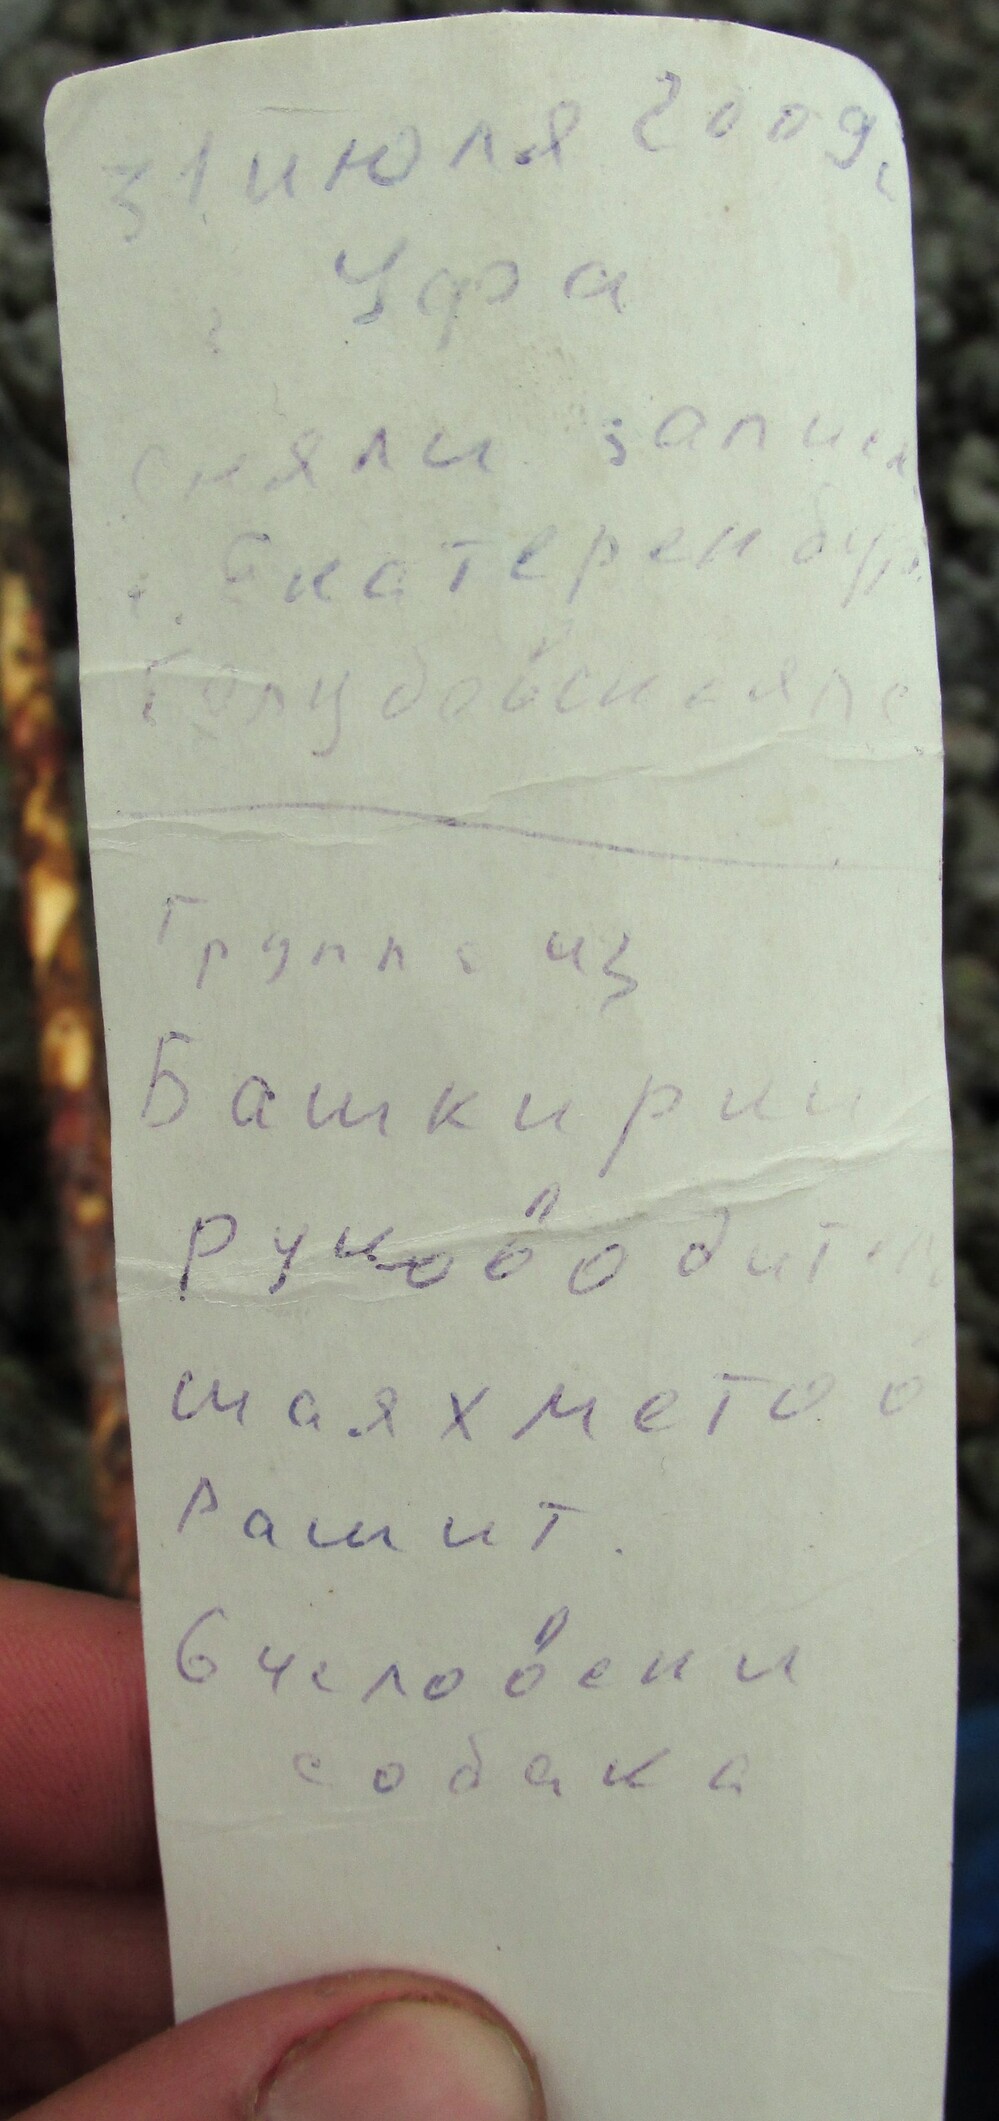 31 июля 2009г
Уфа
сняли запис
г. Екатеренбург
Группа из
Башкирии
Руководител
шаяхметов
Рашит.
6 человек и
собака